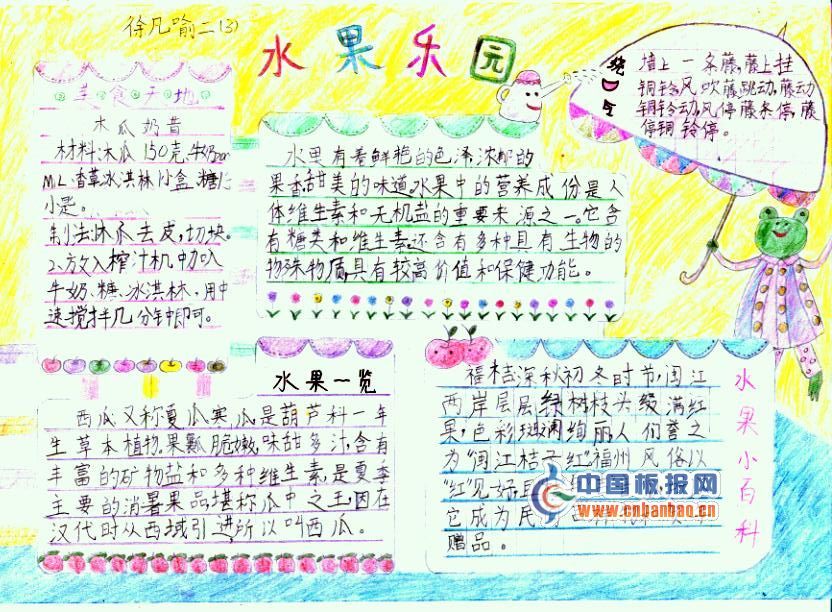 徐凡喻二(3)
水果乐园
美食天地
木瓜奶昔
材料:木瓜150克,牛奶
ML香草冰淇林小盒,糖
制法:木瓜去皮,切块。
2、放入榨汁机中加入
牛奶、糖、冰淇林,用中
速搅拌几分钟即可。
水果有着鲜艳的色泽,浓郁的
果香,甜美的味道,水果中的营养成份是人
体维生素和无机盐的重要来源之一。它含
有糖类和维生素,还含有多种具有生物的
特殊物质,具有较高价值和保健功能。
绕口令
墙上一条藤,藤上挂
铜铃,风吹藤跳动,藤动
铜铃动,风停藤条停,藤
停铜铃停。
水果一览
西瓜又称夏瓜寒瓜,是葫芦科一年
生草本植物。果瓤脆嫩,味甜多汁,含有
丰富的矿物盐和多种维生素,是夏季
主要的消暑果品,堪称瓜中之王,因在
汉代时从西域引进所以叫西瓜。
水果小百科
福桔深秋初冬时节,闽江
两岸层层绿树枝头缀满红
果,色彩斑斓绚丽,人们誉之
为“闽江桔子红”福州风俗以
“红”见好,
它成为民
赠品。
中国板报网
www.cnbanbao.cn